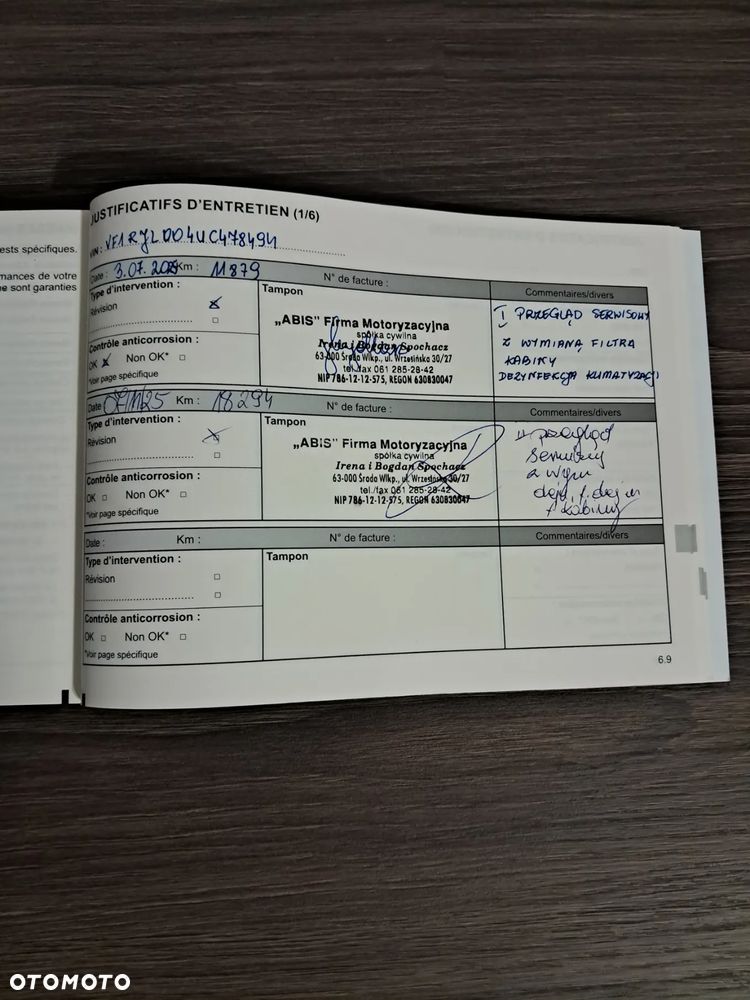 ests spécifiques.
mances de votre
e sont garanties
JUSTIFICATIFS D'ENTRETIEN (1/6)
VIN : VF1RJL004UC478494
Date : 3.07. Km : 11879 N° de facture :
Type d'intervention : Tampon Commentaires/divers
Révision
Contrôle anticorrosion :
OK Non OK*
*Voir page spécifique
„ABIS" Firma Motoryzacyjna
spółka cywilna
Irena i Bogdan Spochacz
63-000 Środa Wlkp., ul. Wrzesińska 30/27
tel./fax 061 285-28-42
NIP 786-12-12-575, REGON 630830047
I PRZEGLĄD SERWISOWY
Z WYMIANĄ FILTRA
KABINY
DEZYNFEKCJA KLIMATYZACJI
Date Km : 18294 N° de facture :
Type d'intervention : Tampon Commentaires/divers
Révision
Contrôle anticorrosion :
OK Non OK*
*Voir page spécifique
„ABIS" Firma Motoryzacyjna
spółka cywilna
Irena i Bogdan Spochacz
63-000 Środa Wlkp., ul. Wrzesińska 30/27
tel./fax 061 285-28-42
NIP 786-12-12-575, REGON 630830047
II przegląd
serwisowy
z wym
kabiny
Date : Km : N° de facture :
Type d'intervention : Tampon Commentaires/divers
Révision
Contrôle anticorrosion :
OK Non OK*
*Voir page spécifique
6.9
OTOMOTO